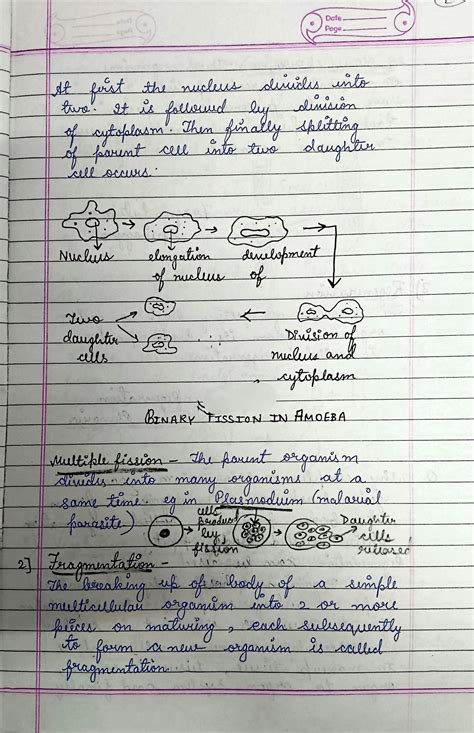 Date
Page
Date
Page
At first the nucleus divides into
two. It is followed by division
of cytoplasm. Then finally splitting
of parent cell into two daughter
cell occurs.
Nucleus
elongation
of nucleus
development
of
Two
daughter
cells
Division of
nucleus and
cytoplasm
BINARY FISSION IN AMOEBA
Multiple fission - The parent organism
divides into many organisms at a
same time. eg in Plasmodium (malarial
parasite)
cells
product
by
fission
Daughter
cells
released
2] Fragmentation -
The breaking up of body of a simple
multicellular organism into 2 or more
pieces on maturing, each subsequently
to form a new organism is called
fragmentation